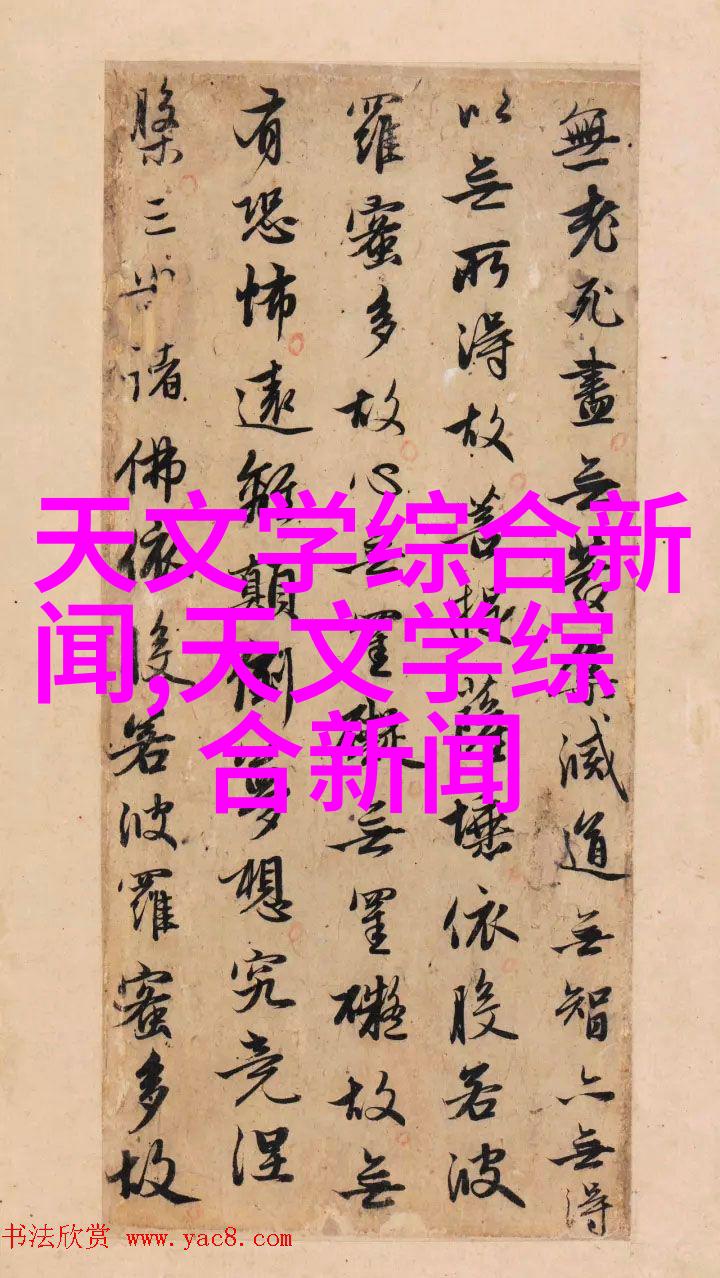 無老死盡无苦集滅道无智亦無得
以无所得故菩提薩埵依般若波
羅蜜多故心无罣礙无罣礙故无
有恐怖遠離顛倒夢想究竟涅
槃三世諸佛依般若波羅蜜多故
天文学综合新
闻,天文学综
合新闻
书法欣赏 www.yac8.com